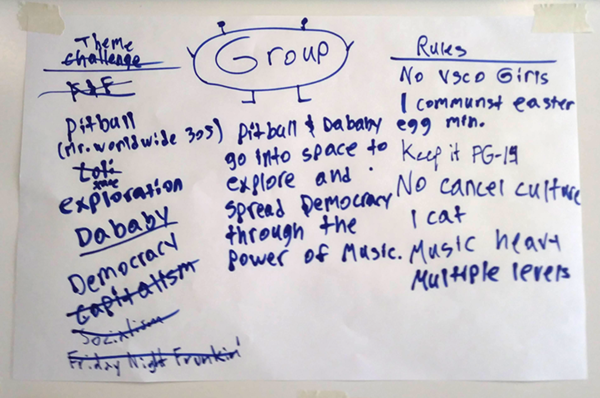 Theme
challenge
Pitball
(Mr. worldwide 305)
exploration
Dababy
Democracy
Capitalism
Socialism
Friday Night Frunkin'
Group
Pitball & Dababy
go into space to
explore and
spread Democracy
through the
Power of Music.
Rules
No VSCO Girls
1 communst easter
egg min.
Keep it PG-19
No cancel culture
1 cat
Music heavy
Multiple levels